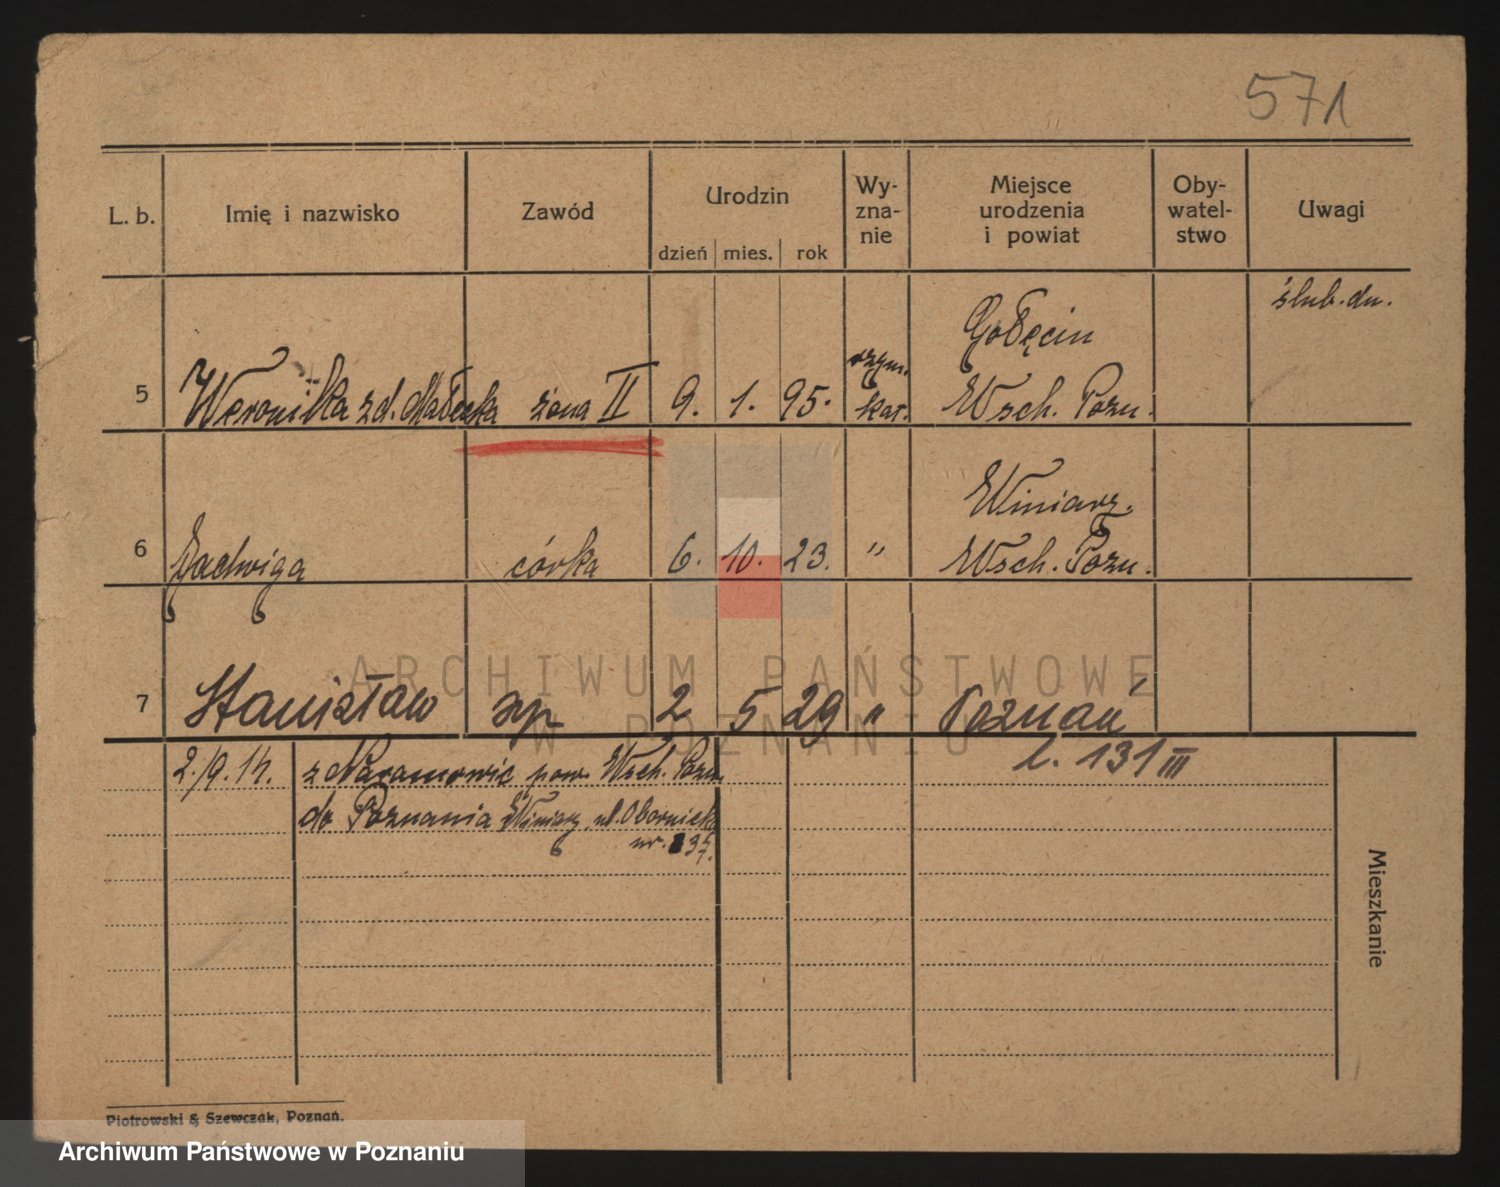 571
L. b. Imię i nazwisko Zawód Urodzin Wy-
zna-
nie Miejsce
urodzenia
i powiat Oby-
watel-
stwo Uwagi
dzień mies. rok
ślub. dn.
Gołęcin
5 Weronika zd. Małecka żona II 9. 1. 95. rzym.
kat. Wsch. Pozn.
Winiary.
6 Jadwiga córka 6. 10. 23. " Wsch. Pozn.
7 Stanisław syn 2 5 29 " Poznań
l. 131 III
2./9.14. z Naramowic pow. Wsch. Pozn.
do Poznania Winiary, ul. Obornicka
nr.
Mieszkanie
Piotrowski & Szewczak, Poznań.
ARCHIWUM PAŃSTWOWE
W POZNANIU
Archiwum Państwowe w Poznaniu